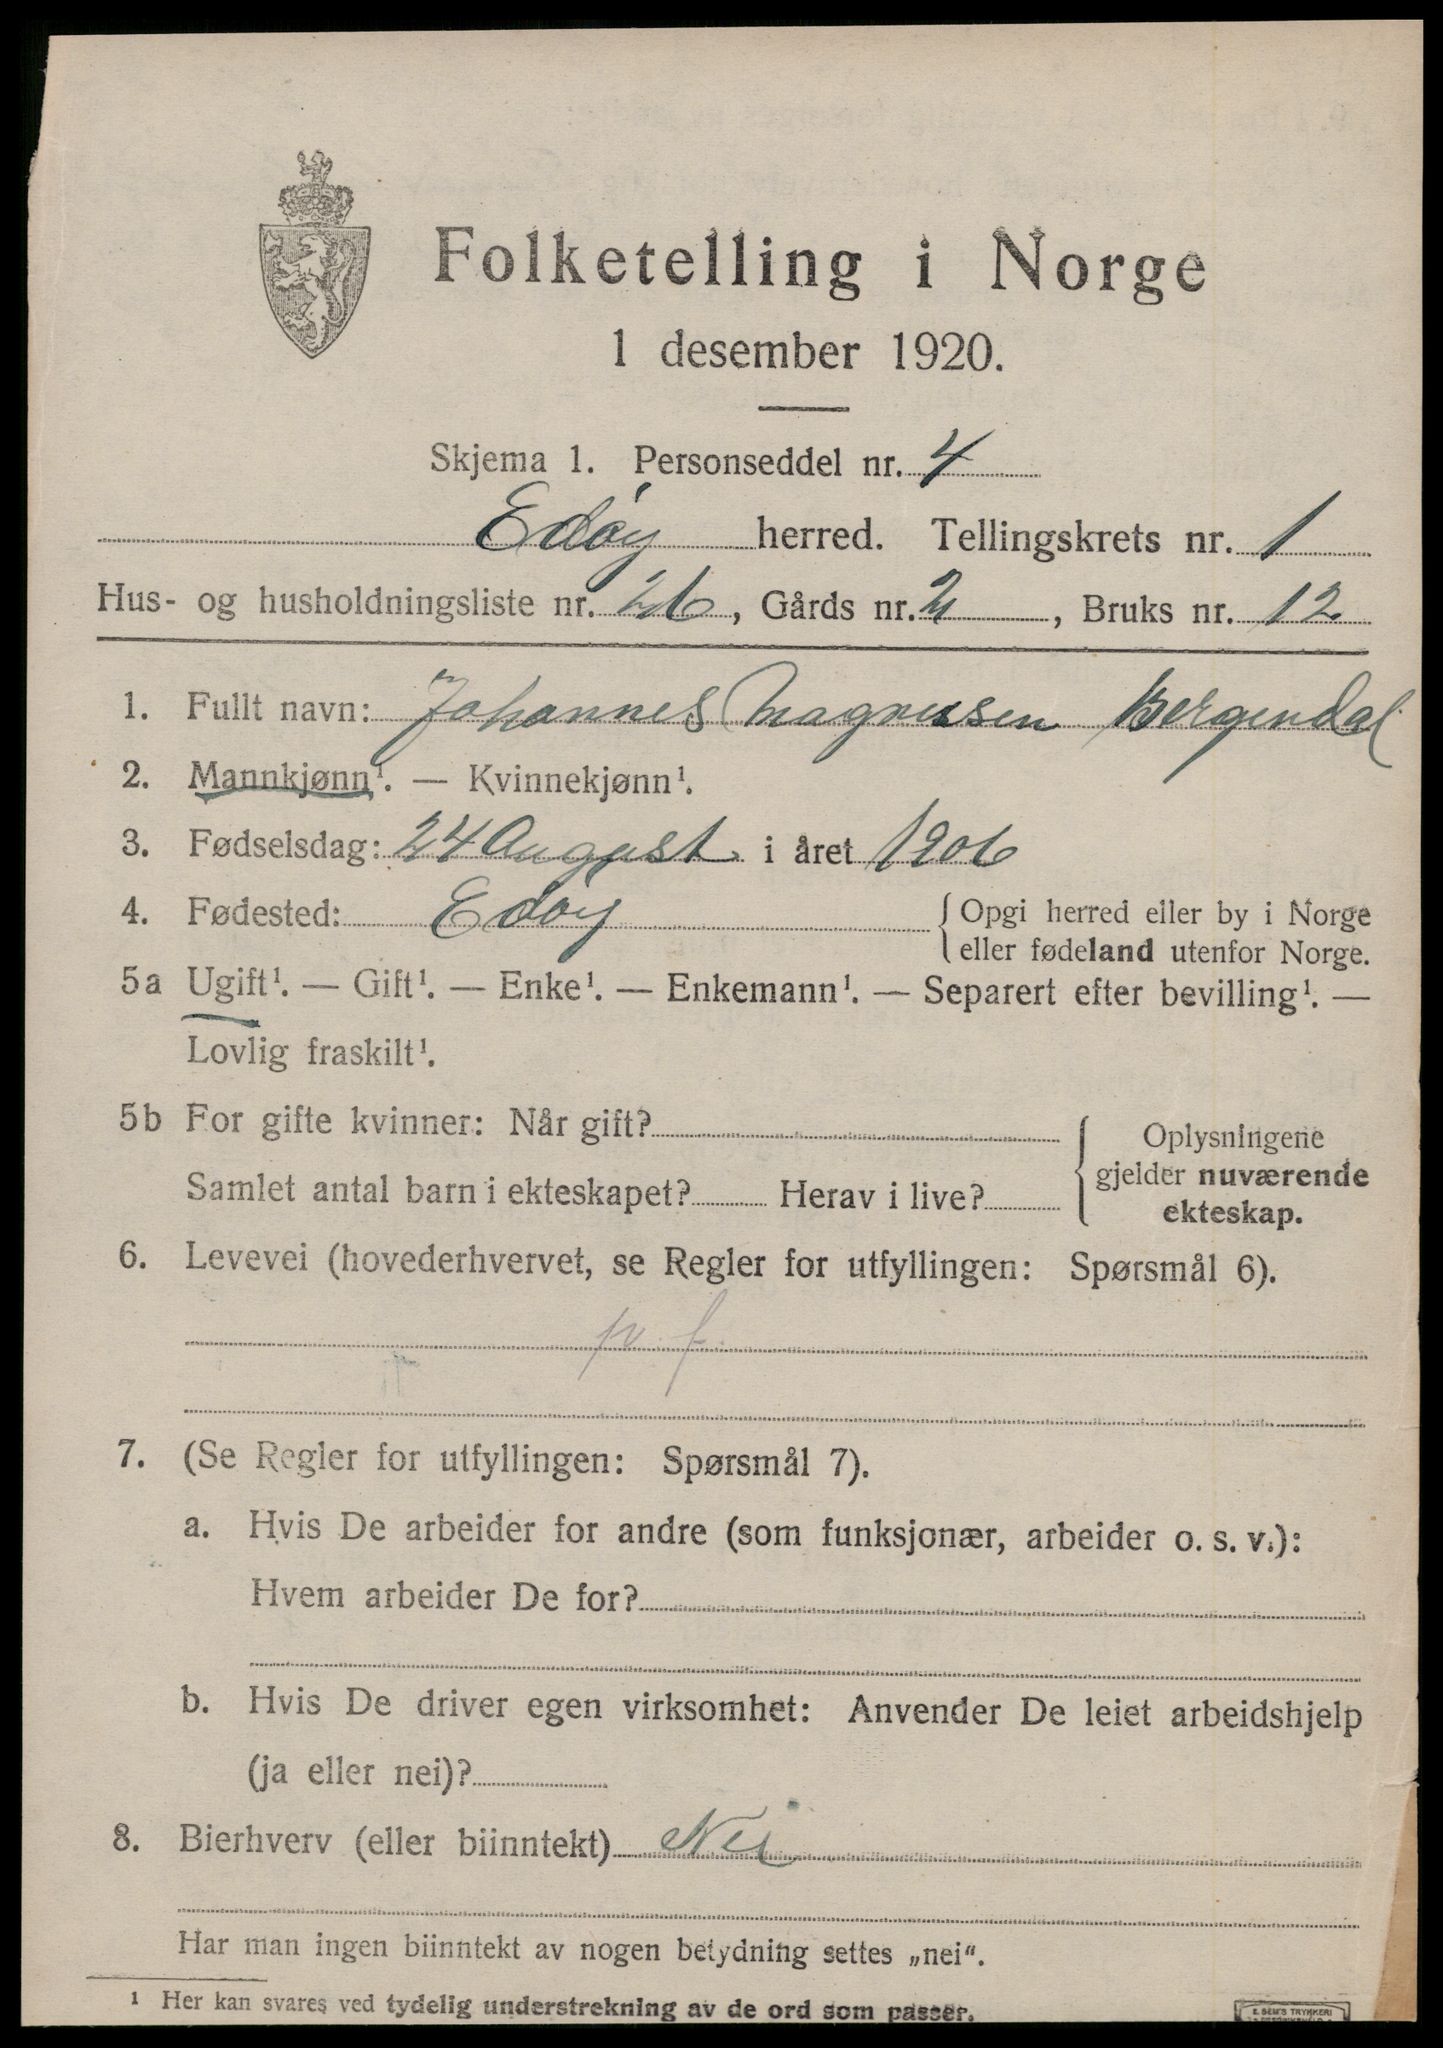 Folketelling i Norge
1 desember 1920.
Skjema 1. Personseddel nr. 4
Edøy herred. Tellingskrets nr. 1
Hus- og husholdningsliste nr. 26, Gårds nr. 2, Bruks nr. 12
1. Fullt navn: Johannes Magnussen Bergendal
2. Mannkjønn¹. — Kvinnekjønn¹.
3. Fødselsdag: 24 August i året 1906
4. Fødested: Edøy { Opgi herred eller by i Norge
eller fødeland utenfor Norge.
5a Ugift¹. — Gift¹. — Enke¹. — Enkemann¹. — Separert efter bevilling¹. —
Lovlig fraskilt¹.
5b For gifte kvinner: Når gift? { Oplysningene
gjelder nuværende
Samlet antal barn i ekteskapet? Herav i live?
ekteskap.
6. Levevei (hovederhvervet, se Regler for utfyllingen: Spørsmål 6).
p. f.
7. (Se Regler for utfyllingen: Spørsmål 7).
a. Hvis De arbeider for andre (som funksjonær, arbeider o. s. v.):
Hvem arbeider De for?
b. Hvis De driver egen virksomhet: Anvender De leiet arbeidshjelp
(ja eller nei)?
8. Bierhverv (eller biinntekt) Nei
Har man ingen biinntekt av nogen betydning settes „nei“.
1 Her kan svares ved tydelig understrekning av de ord som passer.
E. SEM'S TRYKKERI